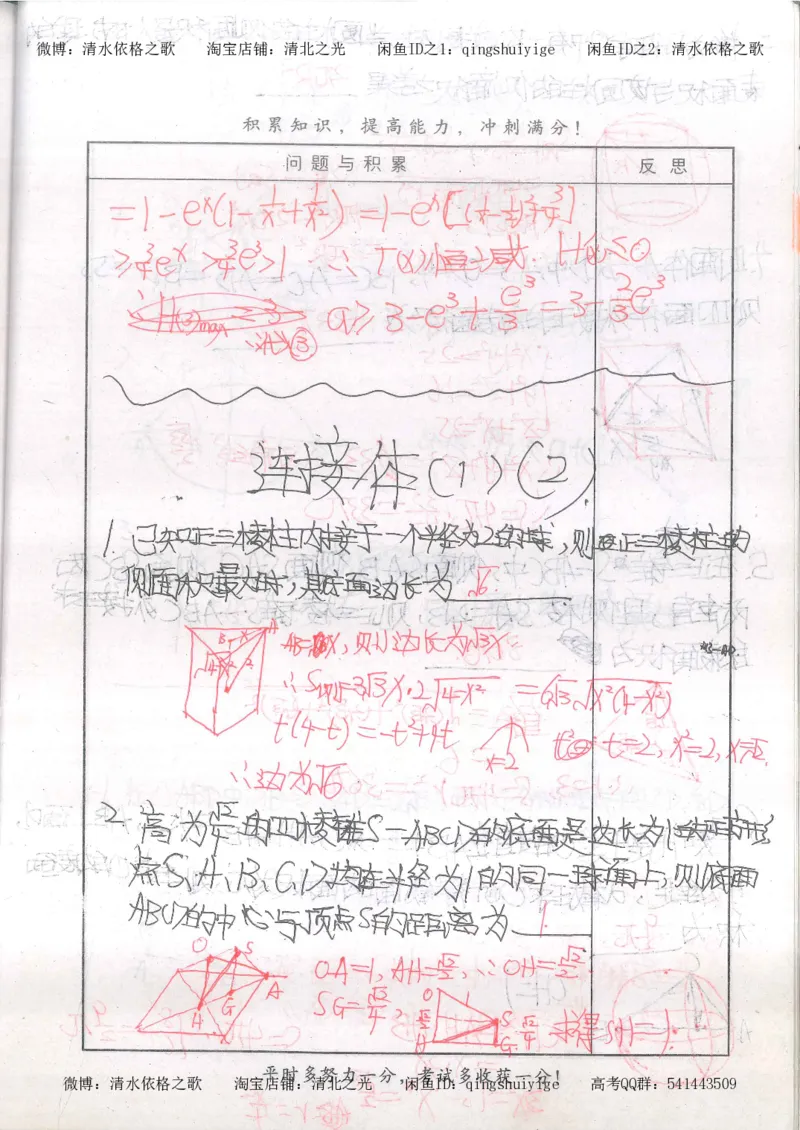 微博：清水依格之歌 淘宝店铺：清北之光 闲鱼ID之1：qingshuiyige 闲鱼ID之2：清水依格之歌
积累知识，提高能力，冲刺满分！
问题与积累 反思
=1-eˣ(1-1/x+1/x²)=1-eˣ[(1/x-1/2)²+3/4]
≥3/4eˣ>3/4e³>1 ∴ 恒成 H(x)≤0
a≥3-e³+e³/3=3-2/3e³
③
连接体(1)(2)
1. 已知正三棱柱内接于一个半径为2的球,则正三棱柱的
侧面积最大时,其底面边长为 √6
,则边长为√3x
∴S侧=3√3x·2√4-x² =6√3√x²(4-x²)
t(4-t)=-t²+4t x=2 t=2,x²=2,x=√2.
∴边为√6
2. 高为√2/4的四棱锥S-ABCD的底面是边长为1的正方形
点S、A、B、C、D均在半径为1的同一球面上,则底面
ABCD的中心与顶点S的距离为 1.
O S A G H
OA=1,AH=√2/2,∴OH=√2/2.
SG=√2/4, O √2/2 H S √2/4 G SH=1.
平时多努力一分，考试多收获一分！
微博：清水依格之歌 淘宝店铺：清北之光 闲鱼ID：qingshuiyige 高考QQ群：541443509